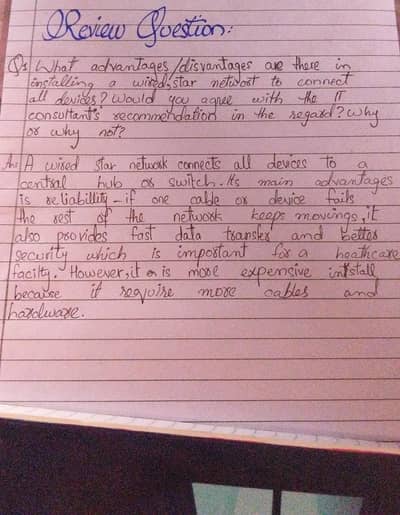 Review Question:
Q: What advantages/disvantages are there in
installing a wired,star network to connect
all devices? Would you agree with the IT
consultant's recommendation in the regard? Why
or why not?
Ans: A wired star network connects all devices to a
central hub or switch. Its main advantages
is reliabillity - if one cable or device fails
the rest of the network keeps movings, it
also provides fast data transfer and better
security which is important for a heathcare
facilty. However,it is more expensive intstall
because it require more cables and
hardware.